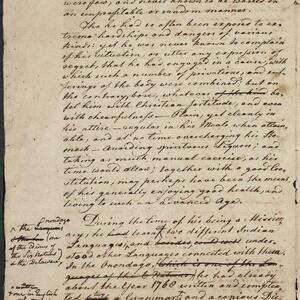 were few, and never known to be wasted in
an unprofitable or vain manner.
Tho he had so often been exposed to ex-
treme hardships and dangers of various
kinds: yet he was never known to complain
of his situation, or utter any expression of
regret, that he had engaged in a cause, with
which such a number of privations, and suf-
ferings of the body were combined but on
the contrary bore, whatever of this kind be-
fel him with Christian fortitude, and even
with chearfulness — Plain, yet cleanly in
his attire — regular in his Meals when attain-
able, and at no time overcharging his Sto-
mach — Avoiding spirituous Liquors; and
taking as much manual exercise, as his
time would allow; together with a good Con-
stitution, may probably have been the means
of his generally enjoying good health, and
living to such an Advanced Age.
During the time of his being a Mission-
ary he had learnt two different Indian
Languages, and besides could under-
stood other Languages connected with them.
In the Onondago, which is a
he had already
about the Year 1768 written and comple-
ted a Grammar and a copious
Onondago
or the language
of the
Six Nations
& the Delaware
one in English